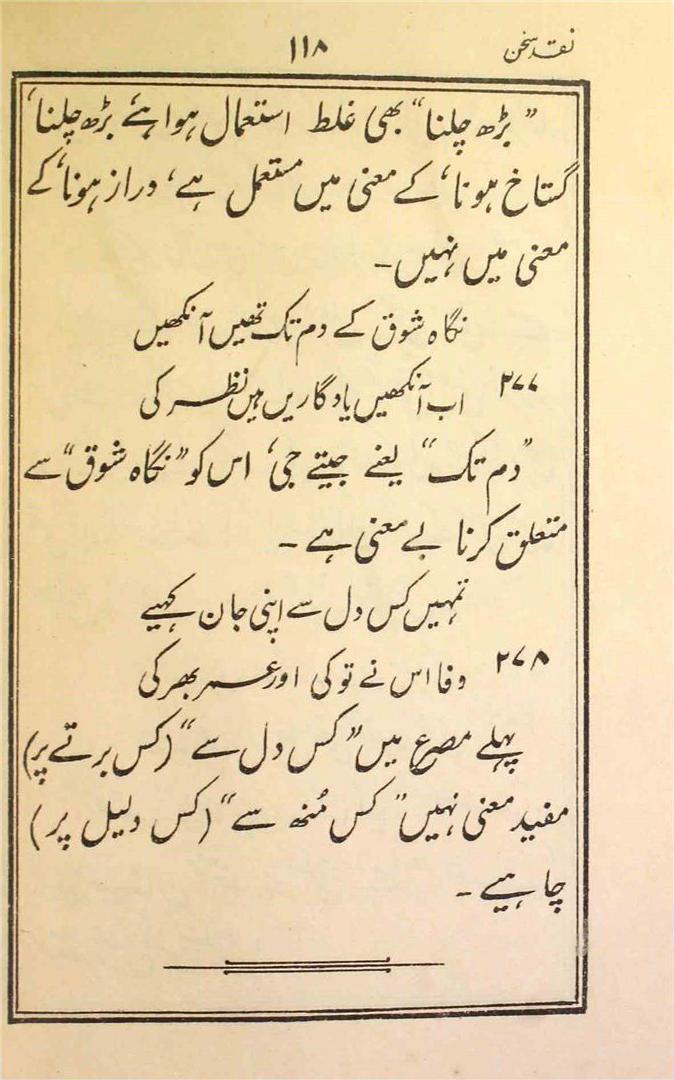 نقد سخن
۱۱۸
”بڑھ چلنا“ بھی غلط استعمال ہوا ہے ’بڑھ چلنا‘
گستاخ ہونا‘ کے معنی میں مستعمل ہے، دراز ہونا‘ کے
معنی میں نہیں۔
نگاہ شوق کے دم تک تھیں آنکھیں
۲۷۷ اب آنکھیں یادگاریں ہیں نظر کی
”دم تک“ یعنے جیتے جی، اس کو ”نگاہ شوق“ سے
متعلق کرنا بے معنی ہے ۔
تمہیں کس دل سے اپنی جان کہیے
۲۷۸ وفا اس نے تو کی اور عمر بھر کی
پہلے مصرع میں ”کس دل سے“ (کس برتے پر)
مفید معنی نہیں ”کس مُنھ سے“ (کس دلیل پر)
چاہیے ۔